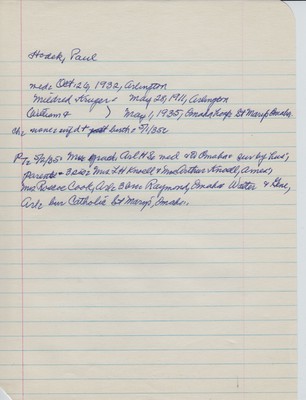 Hodek, Paul
md: Oct 26, 1932, Arlington
Mildred Kruger - May 28, 1911, Arlington
William & ) May 1, 1935, Omaha hosp St Marys Omaha
ch: unnamed birth 5/1/35c
P T: 5/2/35: Mrs grad Arl H S md & to Omaha sur by hus;
parents & 3 sis: Mrs L H Knoell & Mrs Arthur Knoell, Ames,
Mrs Roscoe Cook, Arl: 3 bros Raymond, Omaha Walter & Gene,
Arl: bur Catholic St Marys, Omaha.